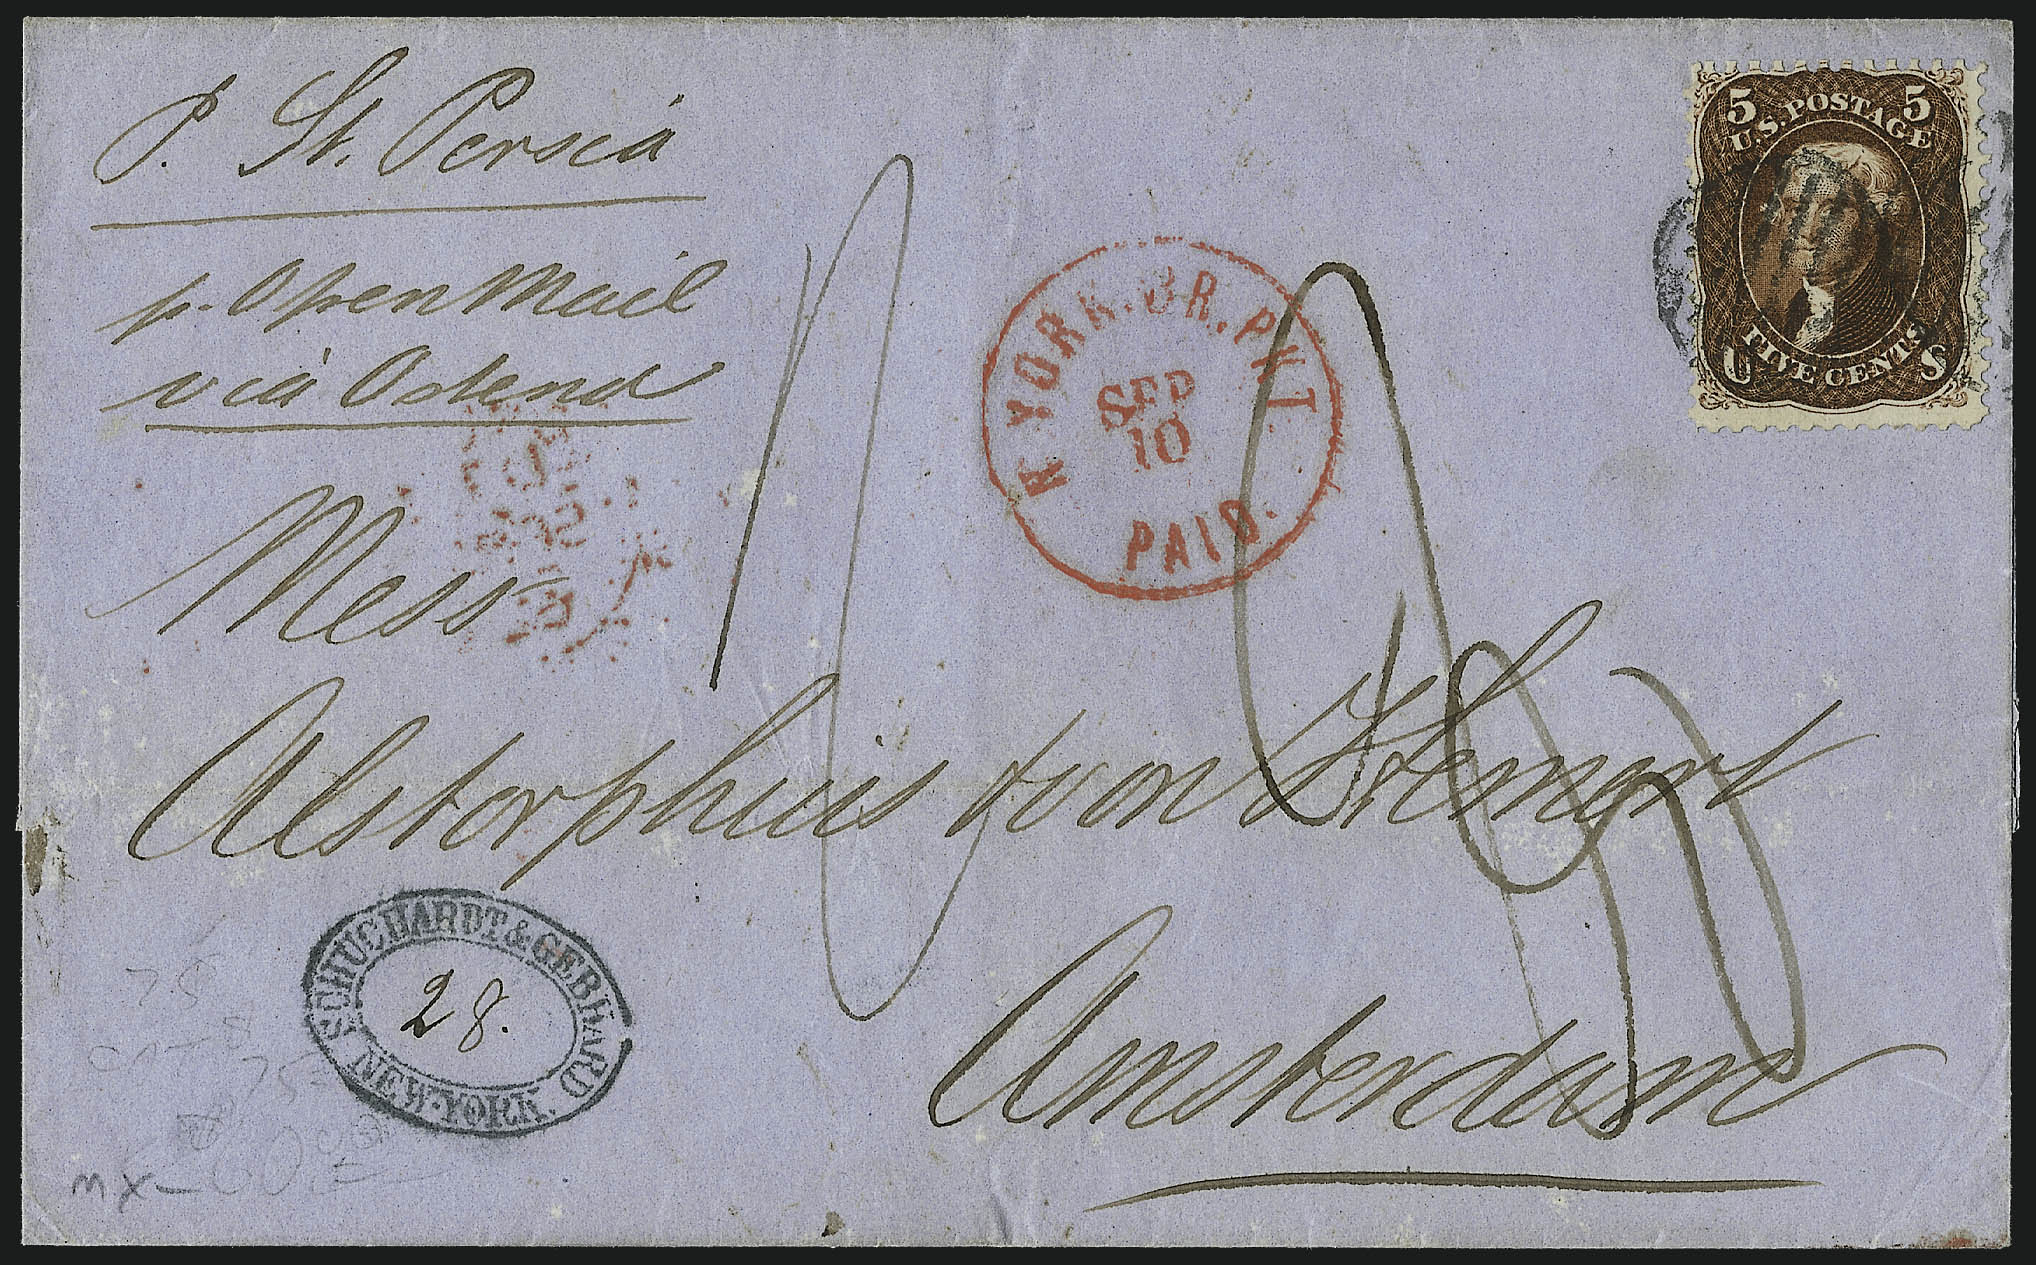 P. St. Persia
p. Open Mail
via Ostend
5 U.S. POSTAGE 5
FIVE CENTS
U S
N YORK. BR. PKT.
SEP
10
PAID.
Mess
Alstorphius & von Hemert
Amsterdam
SCHUCHARDT & GEBHARD
28.
NEW-YORK.
75
75
mx